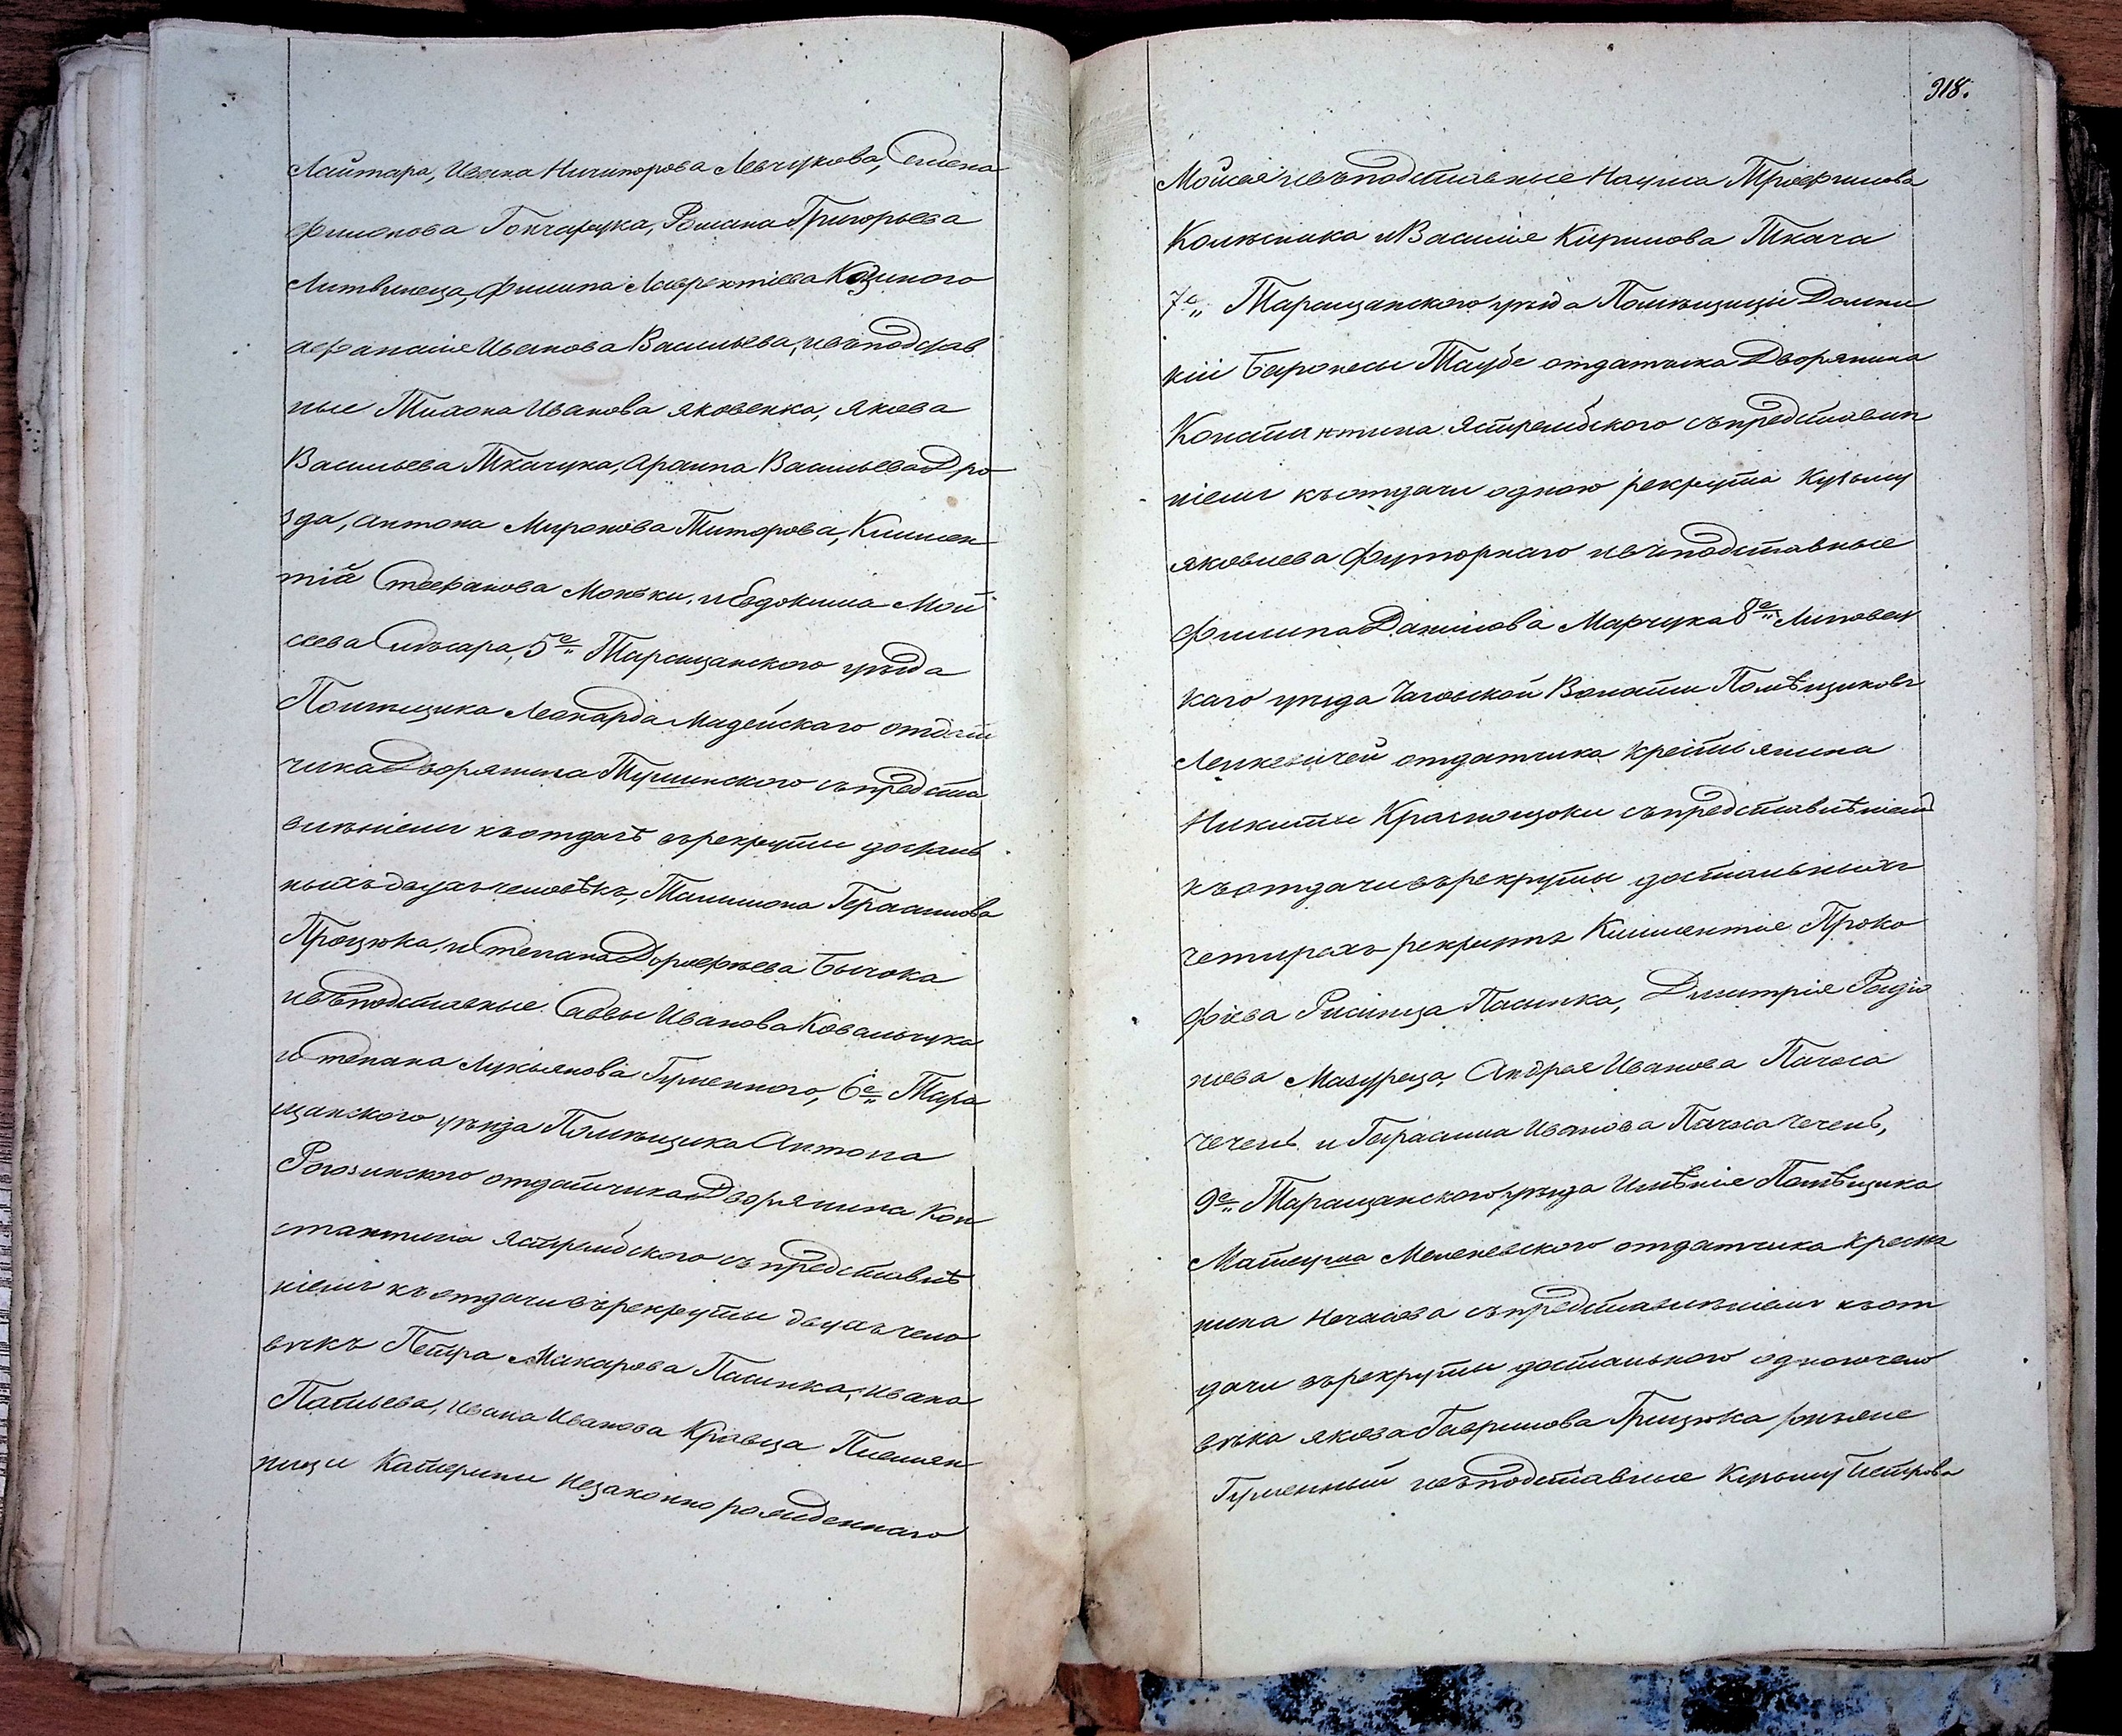 Лайтара, Ивана Ничипорова Левчукова, Семена
Филонова Гончарука, Романа Григорьева
Литвинеца, Филипа Лаврентіева Козиного
Афанасія Иванова Васильева, ивъподстав
ные Тихона Иванова Яковенка, Якова
Васильева Ткачука, Архипа Васильева Дро
зда, Антона Миронова Титорова, Климен
тій Стефанова Моньки, и Евдокима Мой
сеева Слюсара, 5е Таращанского уѣзда
Помѣщика Леонарда Мадейскаго отдат
чика Дворянина Тушинского съпредста
вленіемъ къотдачѣ врекруты досталь
ныхъ двухъ человѣкъ, Филимона Герасимова
Процюка, и Степана Дорофеева Бычока
ивъподставные Саввы Иванова Ковальчука
и Степана Лукьянова Гуменного, 6е Тара
щанского уѣзда Помѣщика Антона
Рогозинского отдатчика Дворянина Кон
стантина Ястрембского съпредставлѣ
ніемъ къотдачи върекруты двухъ чело
вѣкъ Петра Макарова Пасынка, Ивана
Павльева, Ивана Иванова Кравца Племен
ници Катерини незаконно рожденнаго
318.
Мойсея ивъподставные Наума Трофимова
Колѣсника и Василія Кирилова Ткача
7е Таращанского уѣзда Помѣщици Доини
кіи Баронесы Таубе отдатчика Дворянина
Константина Ястрембского съпредставле
ніемъ къотдачи одного рекрута Кузьму
Яковлева Футорнаго ивъподставные
Филипа Данилова Марчука 8е Липовец
каго уѣзда Чаговской Волости Помѣщиковъ
Ленкевичей отдатчика крестьянина
Никиты Краснощоки съпредставлѣніемъ
къотдачи върекруты достальныхъ
четирехъ рекрутъ Климентія Проко
фіева Пасынка, Димитрія Родіо
нова Мазуреца, Андрея Иванова Пачоса
чечель и Герасима Иванова Пачоса Чечель,
9е Таращанского уѣзда Имѣнія Помѣщика
Матеуша Меленевского отдатчика крестя
нина Нечаева съпредставленіемъ къот
дачи върекруты достального одного чело
вѣка Якова Гаврилова Грицюка онъже
Гуменный ивъподставные Кузьму Петрова